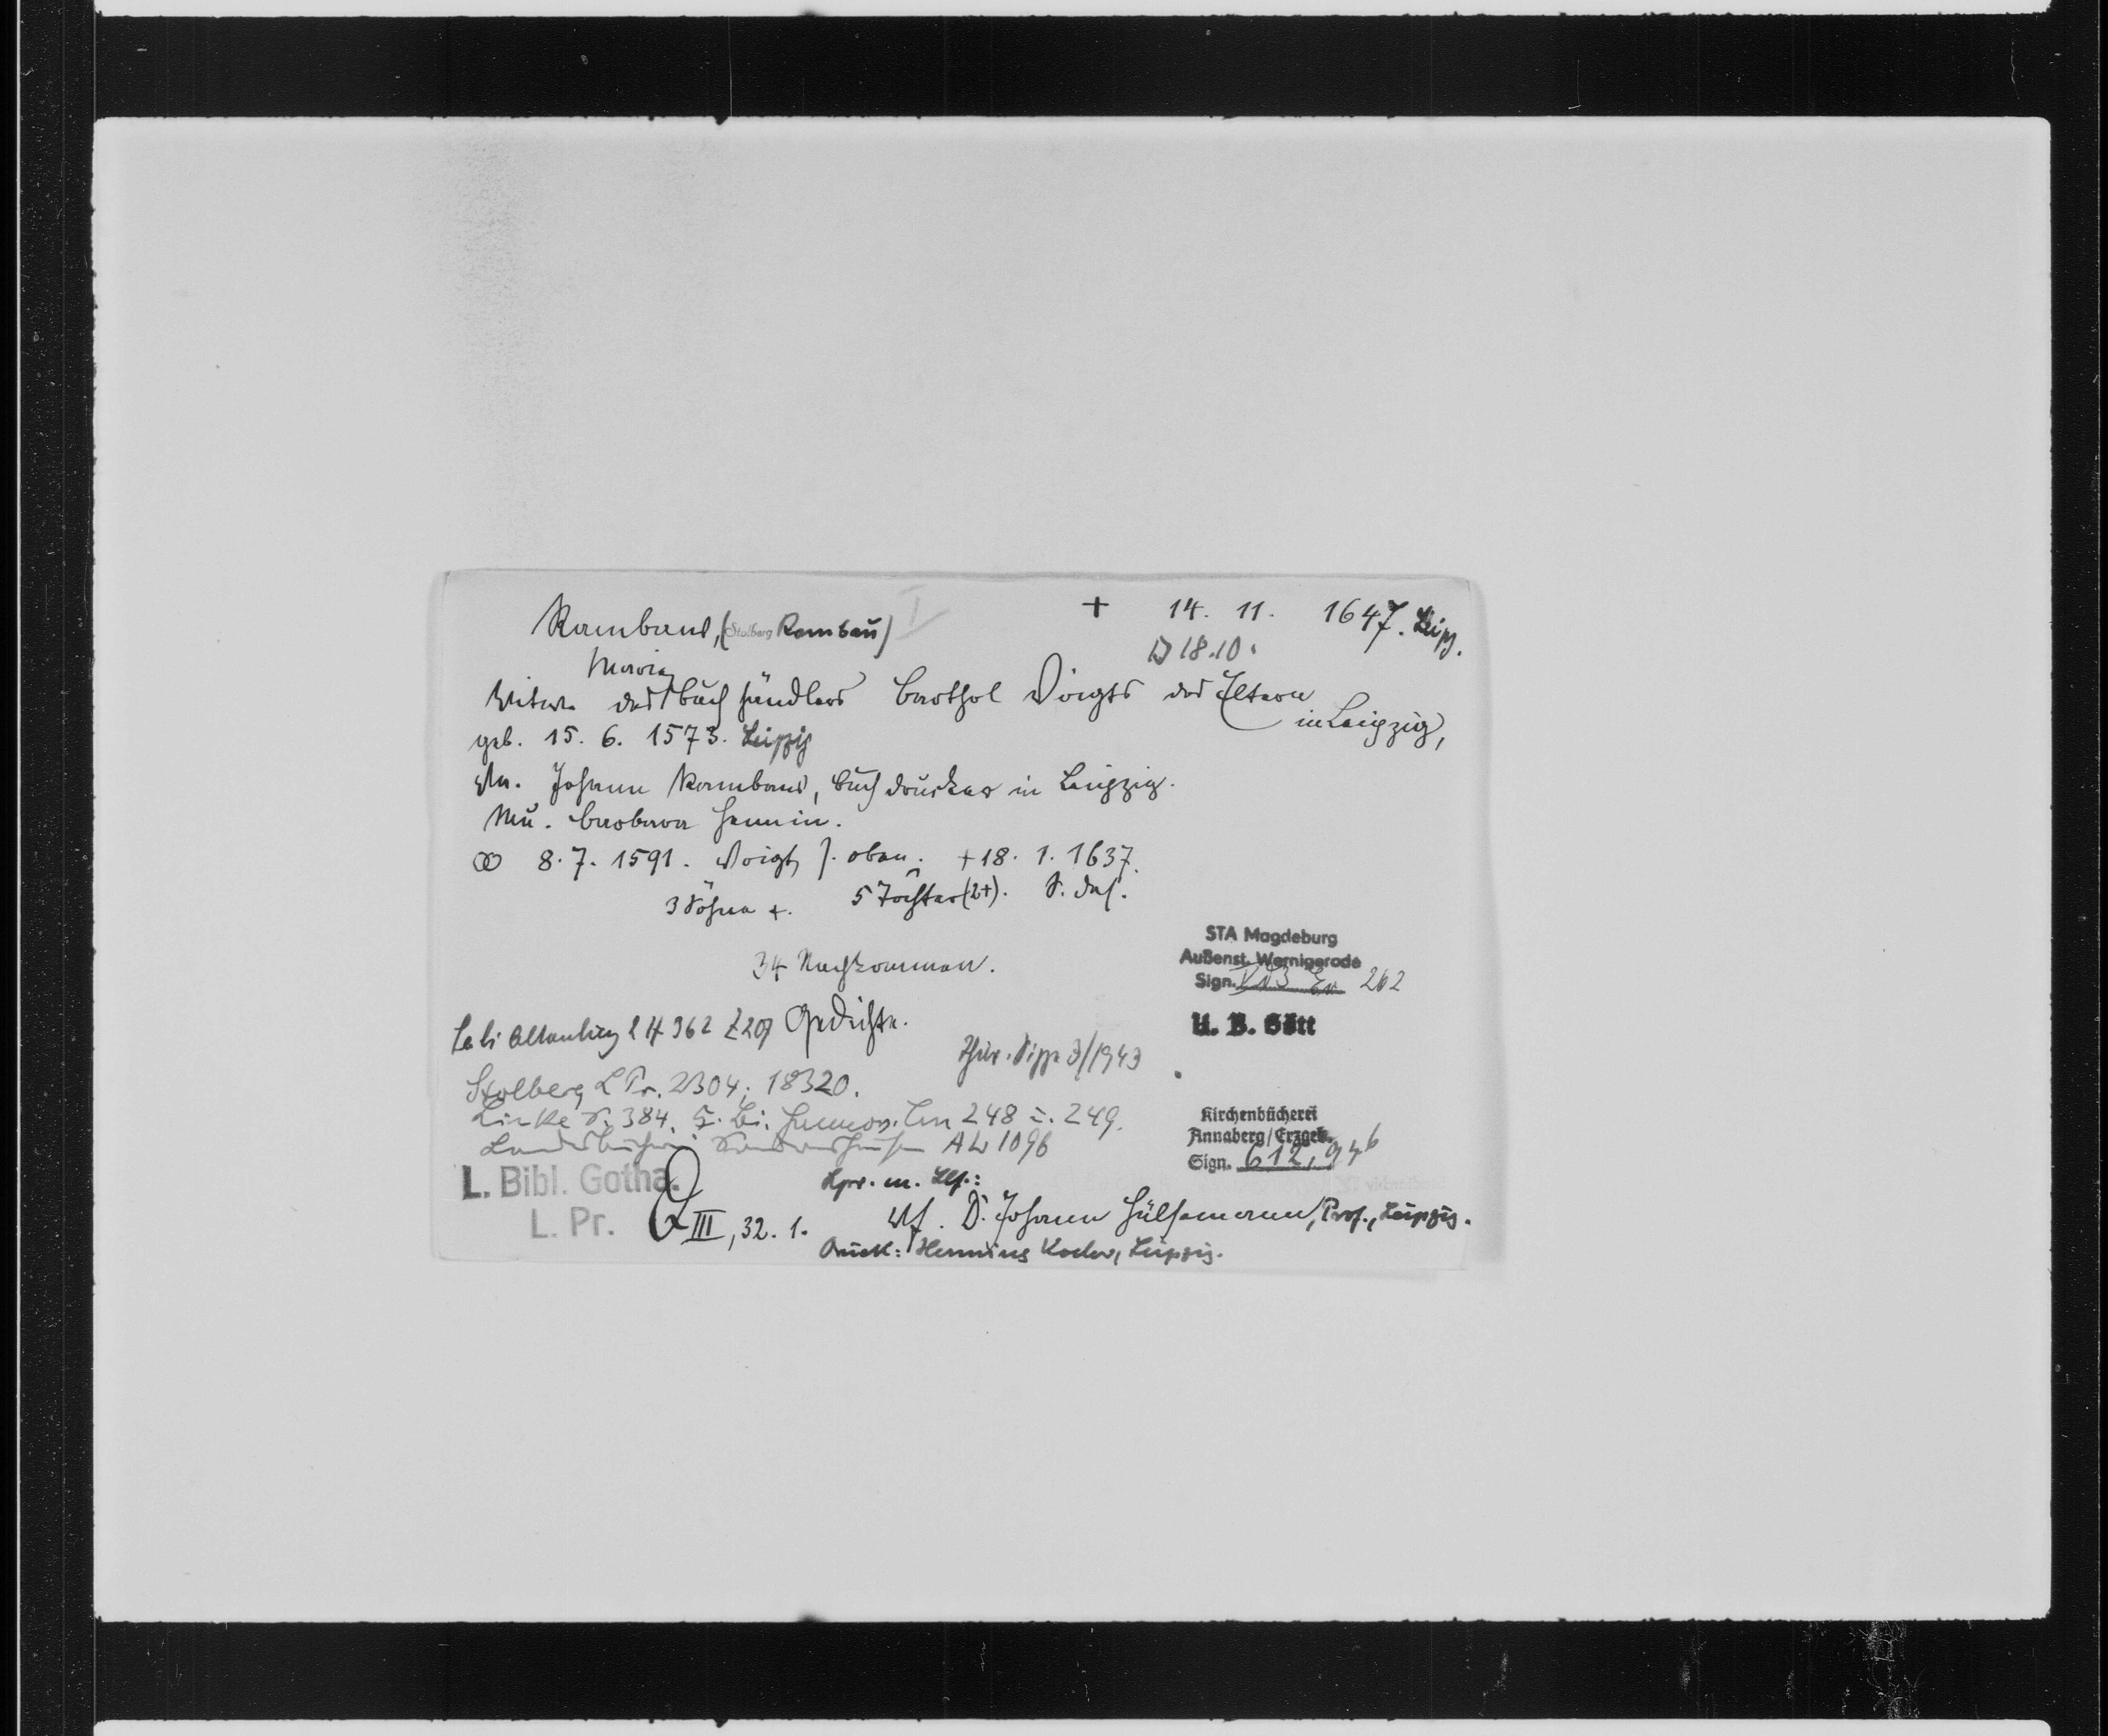 Rambaus, (Stolberg Rambau) I
+ 14. 11. 1647. Leipz.
18.10.
Maria
Witwe des Buchhändlers Barthol Voigts des Ältern
in Leipzig,
geb. 15. 6. 1573. Leipzig
Va. Johann Rambaus, Buchdrucker in Leipzig.
Mu. Barbara
∞ 8. 7. 1591. Voigt s. oben. +18. 1. 1637.
3 Söhne +. 5 Töchter (2+). S. das.
34 Nachkommen.
STA Magdeburg
Außenst. Wernigerode
Sign. 262
U. B. Gött
Labi Altenburg 2 H 362 Z 20 Gedichte.
Thür. Sippe 3/1943
Stolberg L Pr. 2304; 18320.
Linke S. 384. 248 u. 249.
Landesbücherei Sondershausen AL 1096
Kirchenbücherei
Annaberg/Erzgeb.
Sign. 612, 946
L. Bibl. Gotha.
L. Pr. III, 32. 1.
Lpr. m. Llf.:
Vf. D. Johann Hülsemann, Prof., Leipzig.
Druck: Henning Koeler, Leipzig.